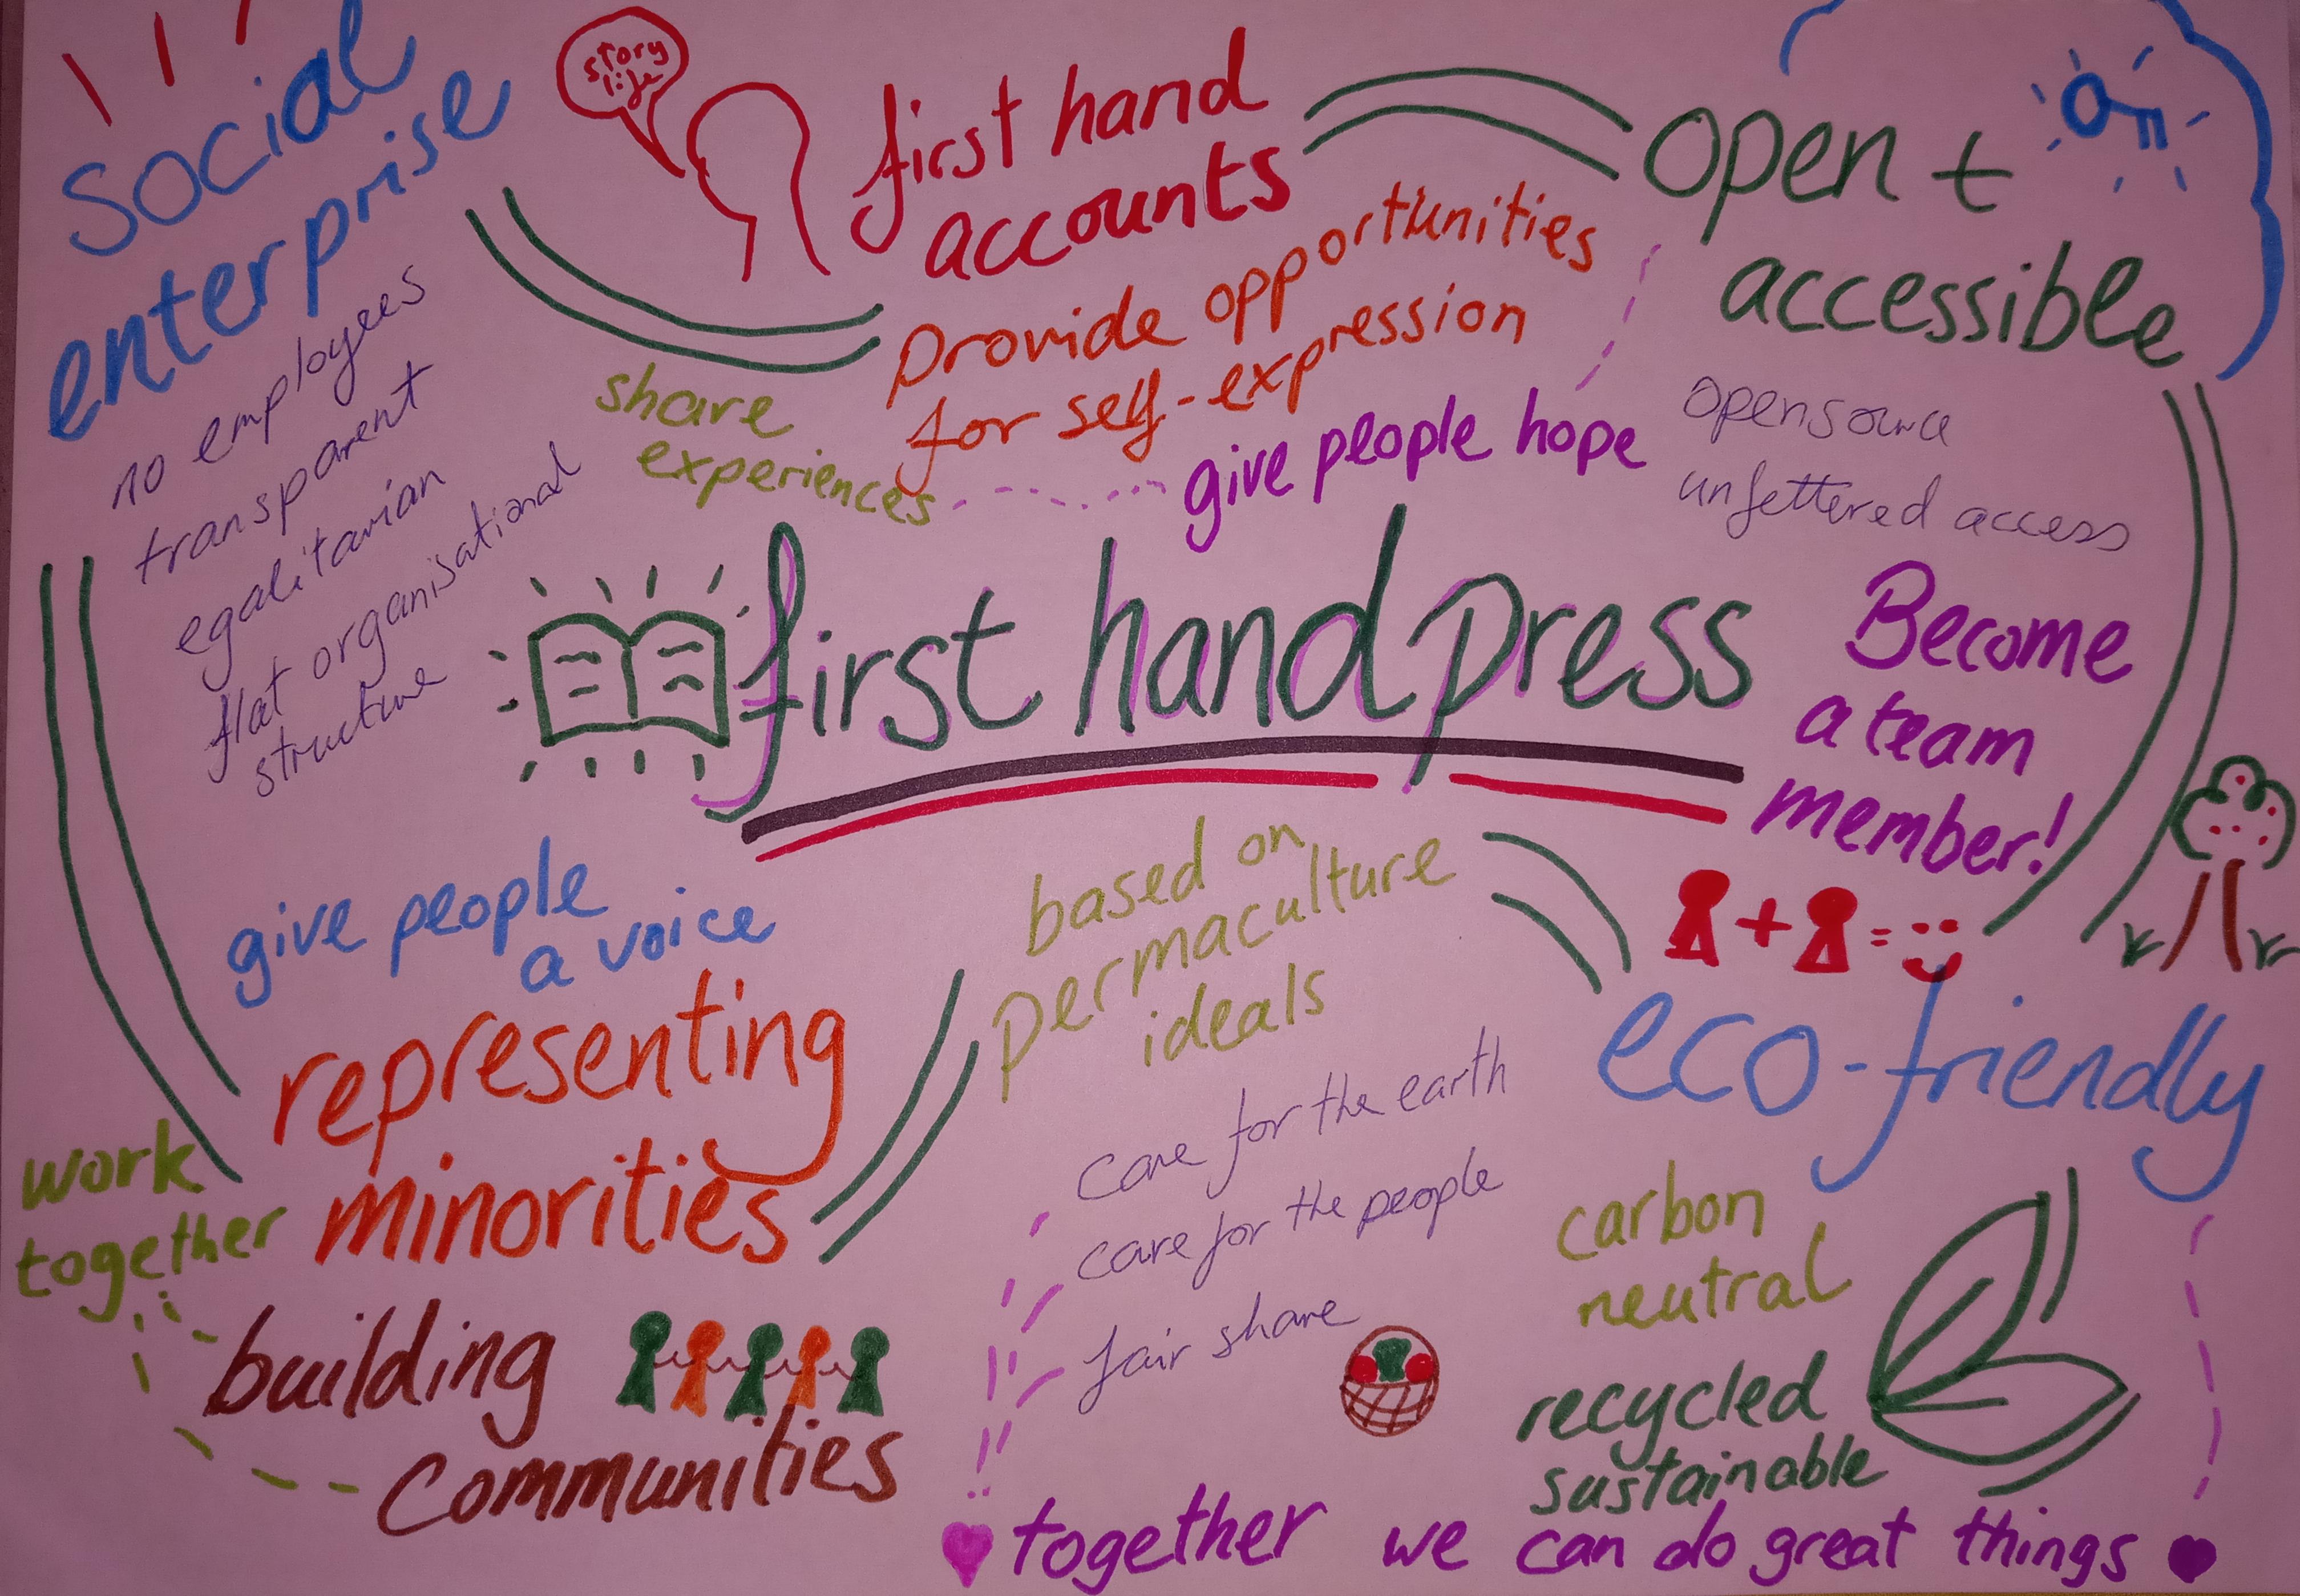 social
enterprise
no employees
transparent
egalitarian
flat organisational
structure
story
life
first hand
accounts
provide opportunities
for self-expression
share
experiences
give people hope
open +
accessible
opensource
unfettered access
first hand press
Become
a team
member!
+ =
give people
a voice
representing
minorities
work
together
building
communities
based on
permaculture
ideals
care for the earth
care for the people
fair share
eco-friendly
carbon
neutral
recycled
sustainable
together we can do great things